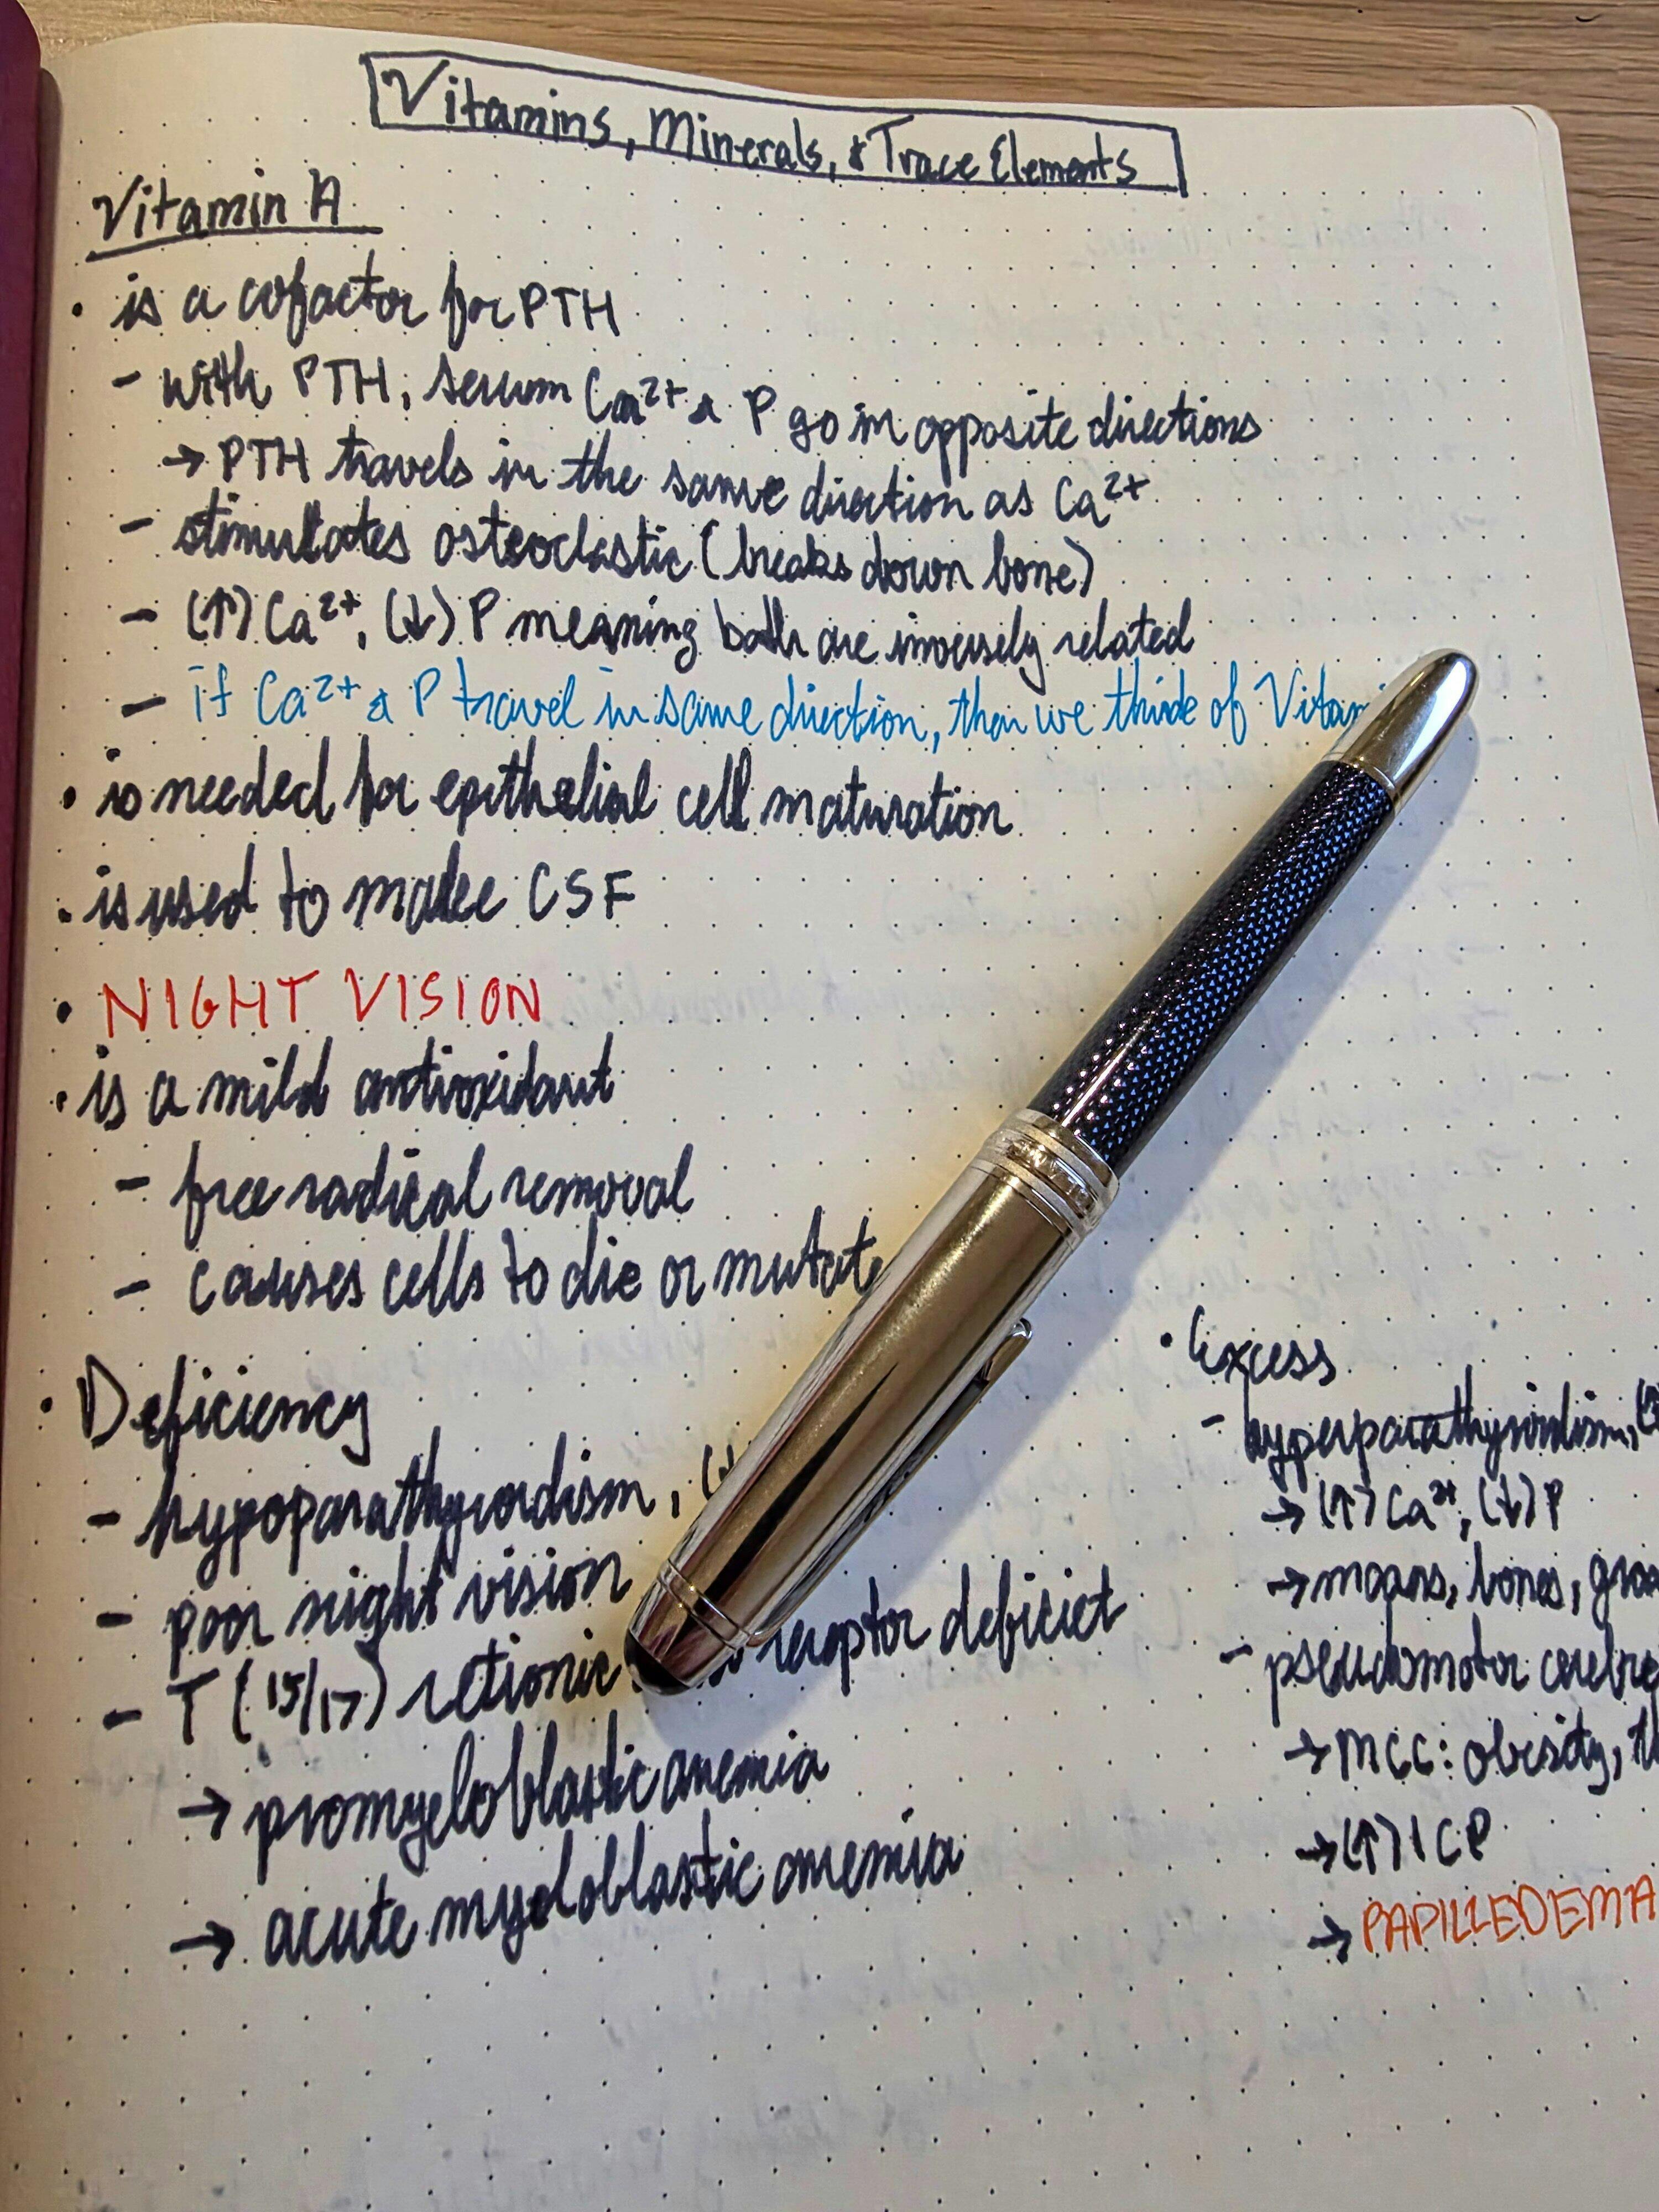 Vitamins, Minerals, & Trace Elements
Vitamin A
• is a cofactor for PTH
- with PTH, serum Ca²⁺ & P go in opposite directions
→ PTH travels in the same direction as Ca²⁺
- stimultates osteoclastic (breaks down bone)
- (↑) Ca²⁺, (↓) P meaning both are inversely related
- if Ca²⁺ & P travel in same direction, then we think of
• is needed for epithelial cell maturation
• is used to make CSF
• NIGHT VISION
• is a mild antioxidant
- free radical removal
- causes cells to die or mutate
• Deficiency
- hypoparathyroidism,
- poor night vision
- T (15/17) retionic receptor deficict
→ promyeloblastic anemia
→ acute myeloblastic anemia
• Excess
- hyperparathyroidism,
→ (↑) Ca²⁺, (↓) P
→ moans, bones,
- pseudomotor
→ MCC: obesity,
→ (↑) ICP
→ PAPILLEDEMA